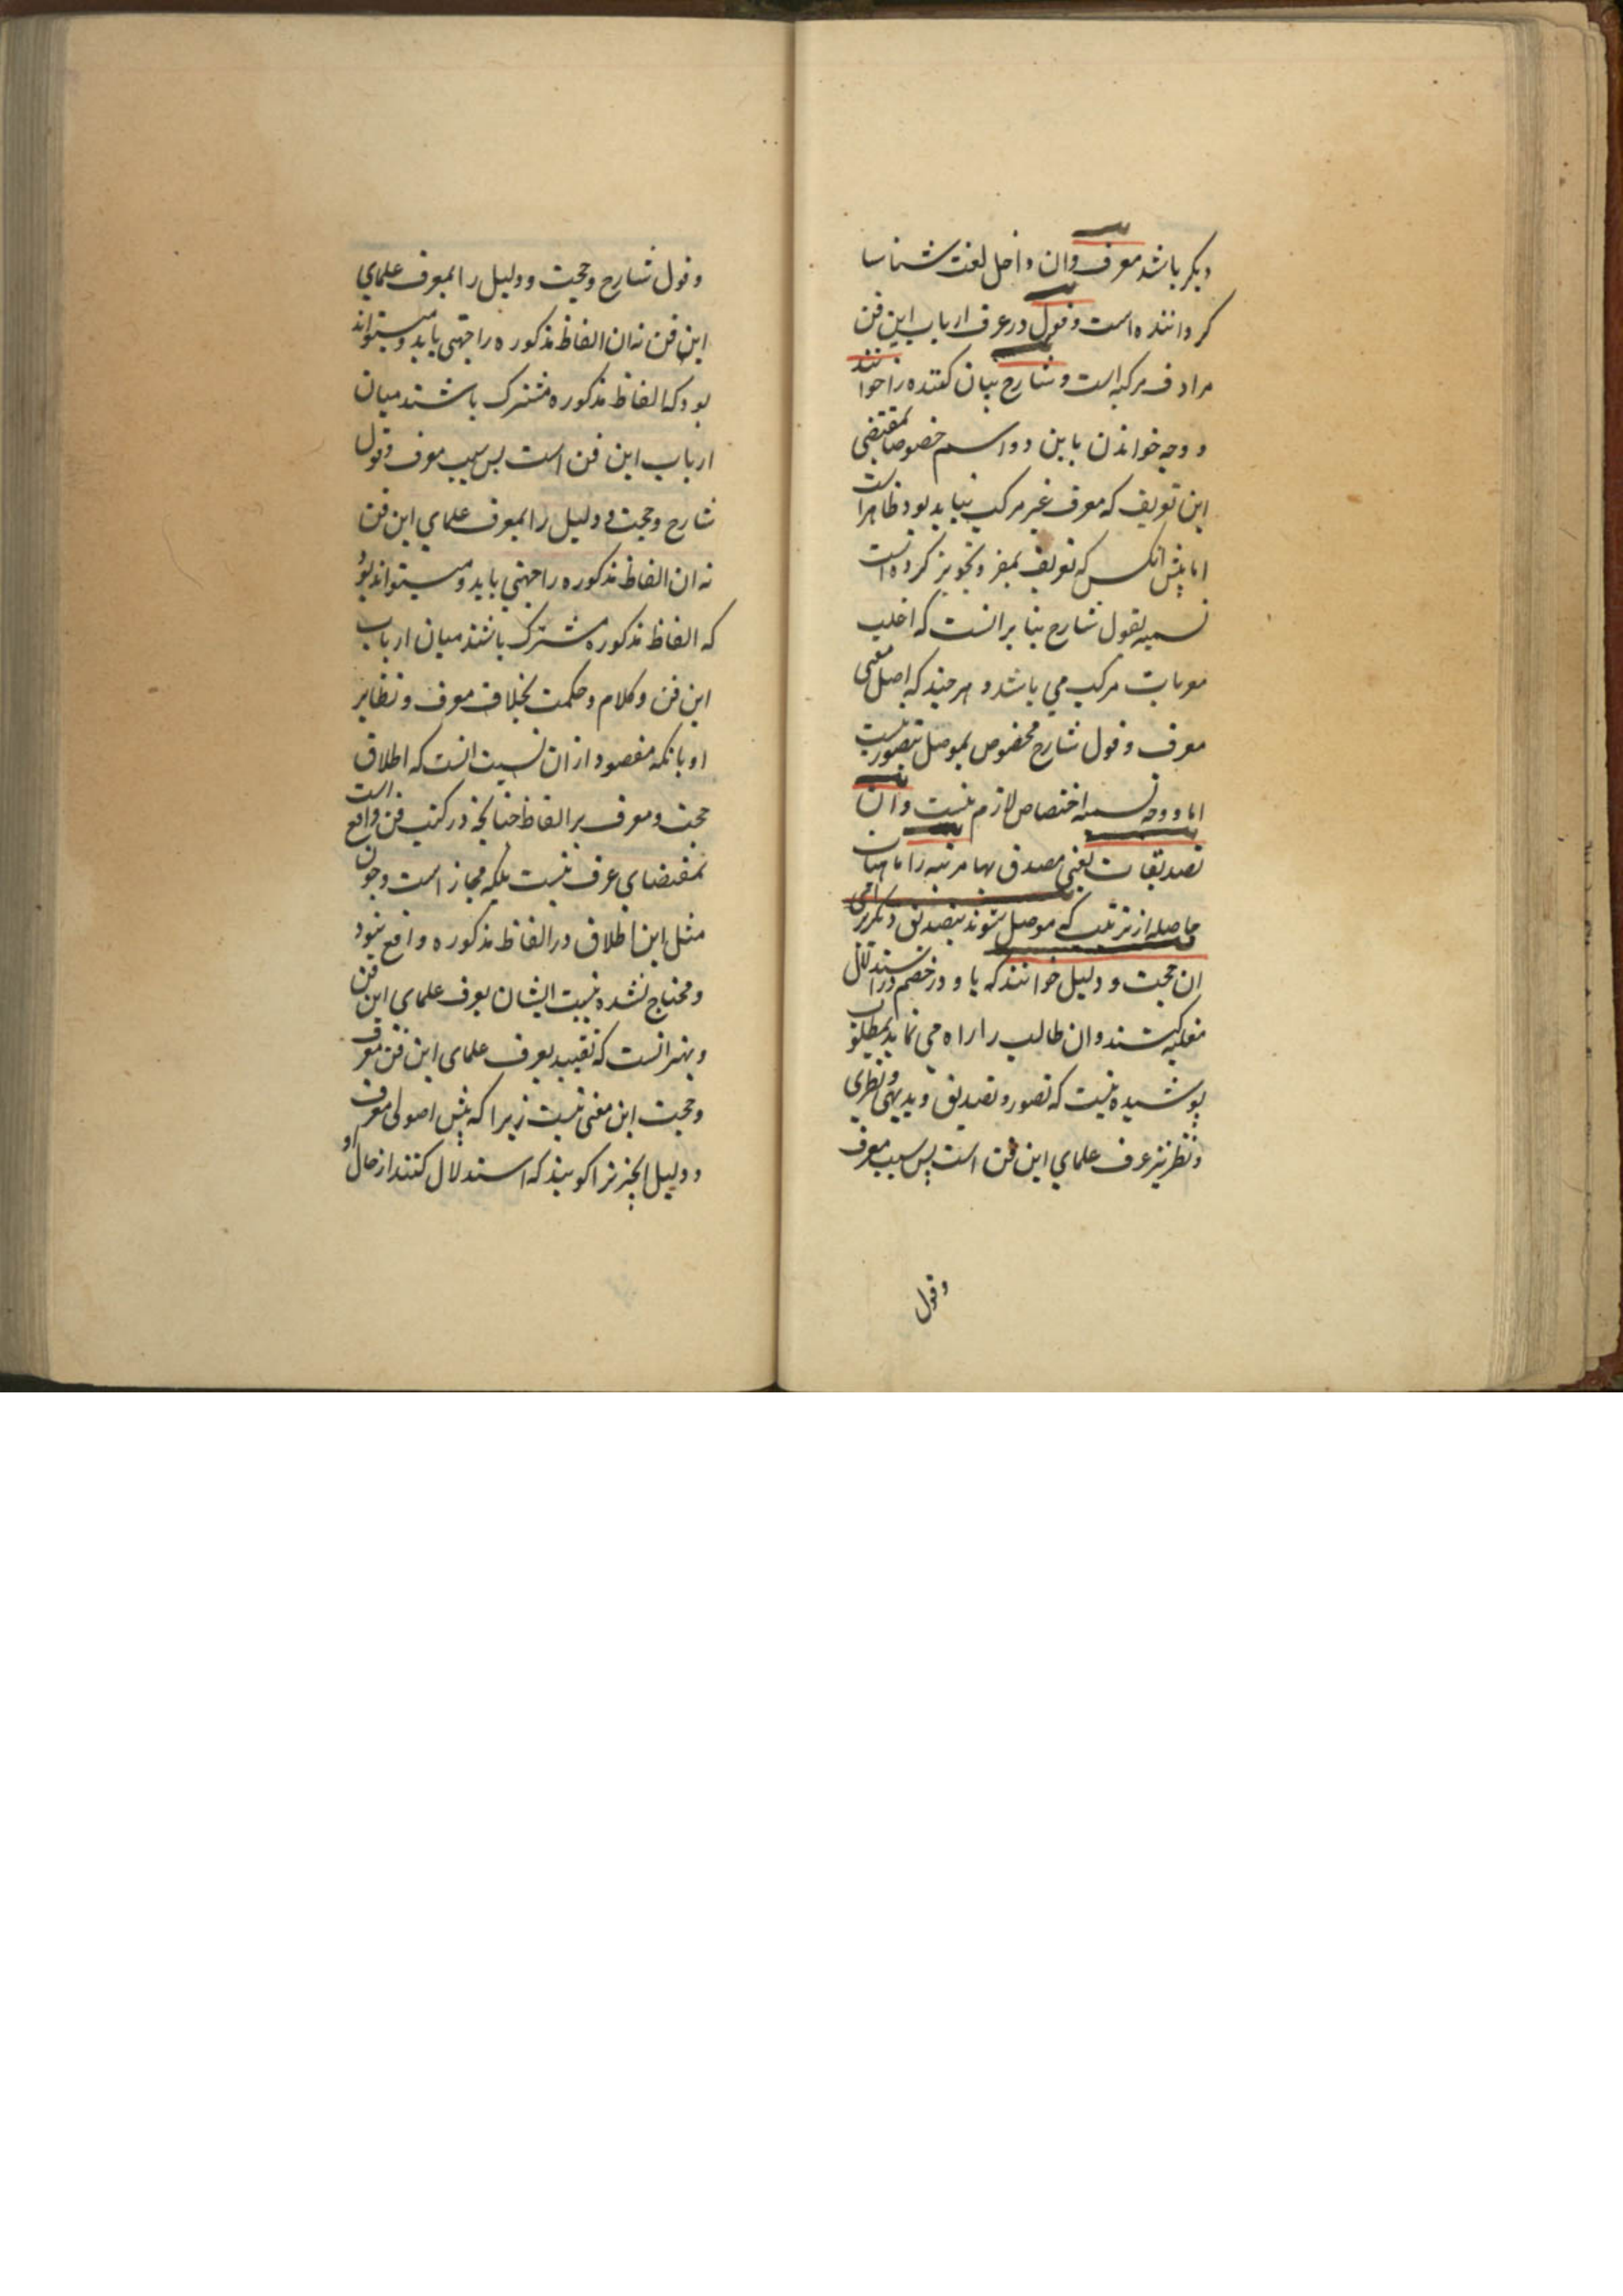 دیکر باشد معرف وان داخل لغت شناسا
کرداننده است وقول در عرف ارباب این فن
مرادف مرکبه است وشارح بیان کننده را خوانند
ووجه خواندن باین دو اسم خصوصا مقتضی
این تعریف که معرف غیر مرکب نباید بود ظاهر است
اما پیش انکس که تعریف بمفرد تجویز کرده است
تسمیه بقول شارح بنا بر انست که اغلب
معرفات مرکب می باشد و هر چند که اصل معنی
معرف وقول شارح مخصوص بموصل بتصور نیست
اما در وجه تسمیه اختصاص لازم نیست وان
تصدیقات یعنی مصدق بها مرتبه را یا هیات
حاصله از ترتیب که موصل شوند بتصدیق دیکر
ان حجت و دلیل خوانند که با و در خصم در استدلال
غلبه کنند وان طالب را راه می نماید بمطلوب
پوشیده نیست که تصور وتصدیق وبدیهی ونظری
ونظر نیز عرف علمای این فن است پس سبب معرف
وقول
وقول شارح وحجت ودلیل را بعرف علمای
این فن نه ان الفاظ مذکوره را جهتی باید ومیتواند
بود که الفاظ مذکوره مشترک باشند میان
ارباب این فن است پس سبب معرف وقول
شارح وحجت ودلیل را بعرف علمای این فن
نه ان الفاظ مذکوره را جهتی باید ومیتواند بود
که الفاظ مذکوره مشترک باشند میان ارباب
این فن وکلام وحکمت بخلاف معرف ونظایر
او یا نکه مقصود از ان نسبت انست که اطلاق
حجت ومعرف بر الفاظ چنانچه در کتب فن واقع است
بمقتضای عرف نیست بلکه مجاز است وچون
مثل این اطلاق در الفاظ مذکوره واقع نبود
ومحتاج نشده نسبت ایشان بعرف علمای این فن
وبهتر انست که تقیید بعرف علمای این فن معرف
وحجت این معنی نیست زیرا که پیش اصولی معرف
ودلیل چیزیرا کویند که استدلال کنند از حال او